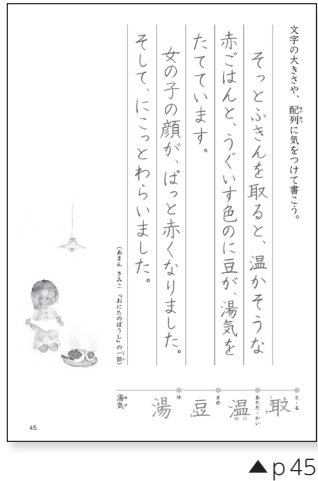 文字の大きさや、配列に気をつけて書こう。
そっとふきんを取ると、温かそうな
赤ごはんと、うぐいす色のに豆が、湯気を
たてています。
女の子の顔が、ぱっと赤くなりました。
そして、にこっとわらいました。
(あまん きみこ 「おにたのぼうし」の一部)
と・る
取
あたた・かい
温
まめ
豆
ゆ
湯
湯気
45
▲p45